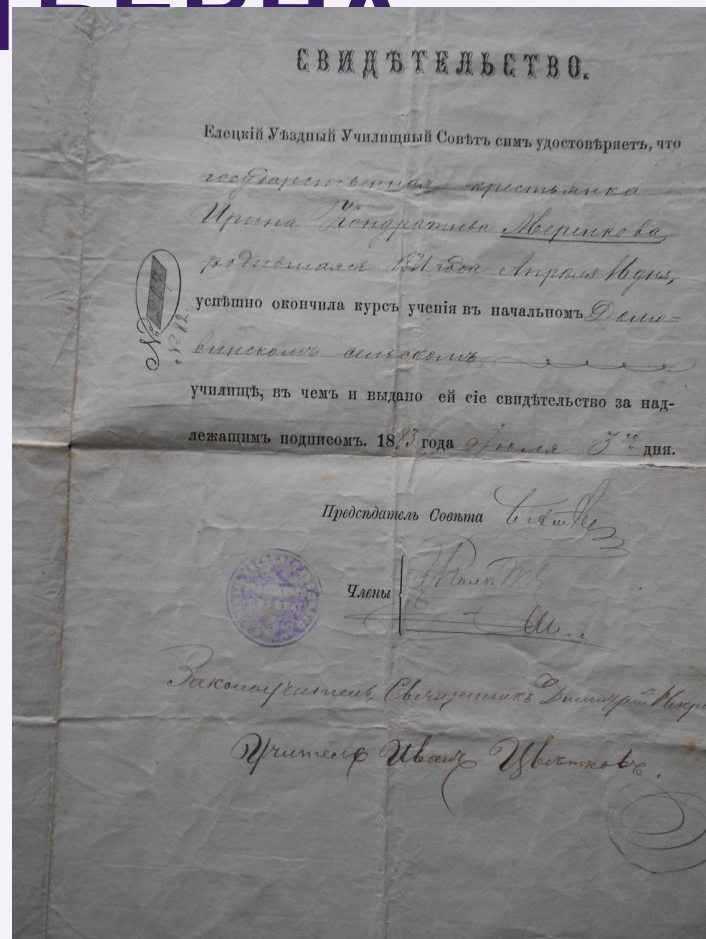 СВИДѢТЕЛЬСТВО.
Елецкій Уѣздный Училищный Совѣтъ симъ удостовѣряетъ, что
государственная крестьянка
Ирина Кондратьева Меренкова,
родившаяся года Апрѣля дня,
успѣшно окончила курсъ ученія въ начальномъ
сельскомъ
училищѣ, въ чемъ и выдано ей сіе свидѣтельство за над-
лежащимъ подписомъ. 1893 года дня.
Предсѣдатель Совѣта
Члены
Законоучитель, Священникъ Димитрій
Учитель Иванъ Цвѣтковъ.